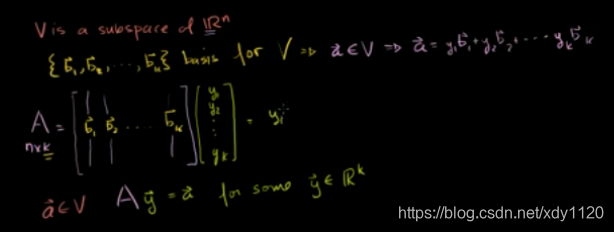 V is a subspace of ℝⁿ
{b⃗₁, b⃗₂, ..., b⃗ₖ} basis for V ⇒ a⃗ ∈ V ⇒ a⃗ = y₁b⃗₁ + y₂b⃗₂ + ... yₖb⃗ₖ
A = [b⃗₁ b⃗₂ .... b⃗ₖ] [y₁ y₂ ⋮ yₖ] = y₁
n×k
a⃗ ∈ V A y⃗ = a⃗ for some y⃗ ∈ ℝᵏ
https://blog.csdn.net/xdy1120